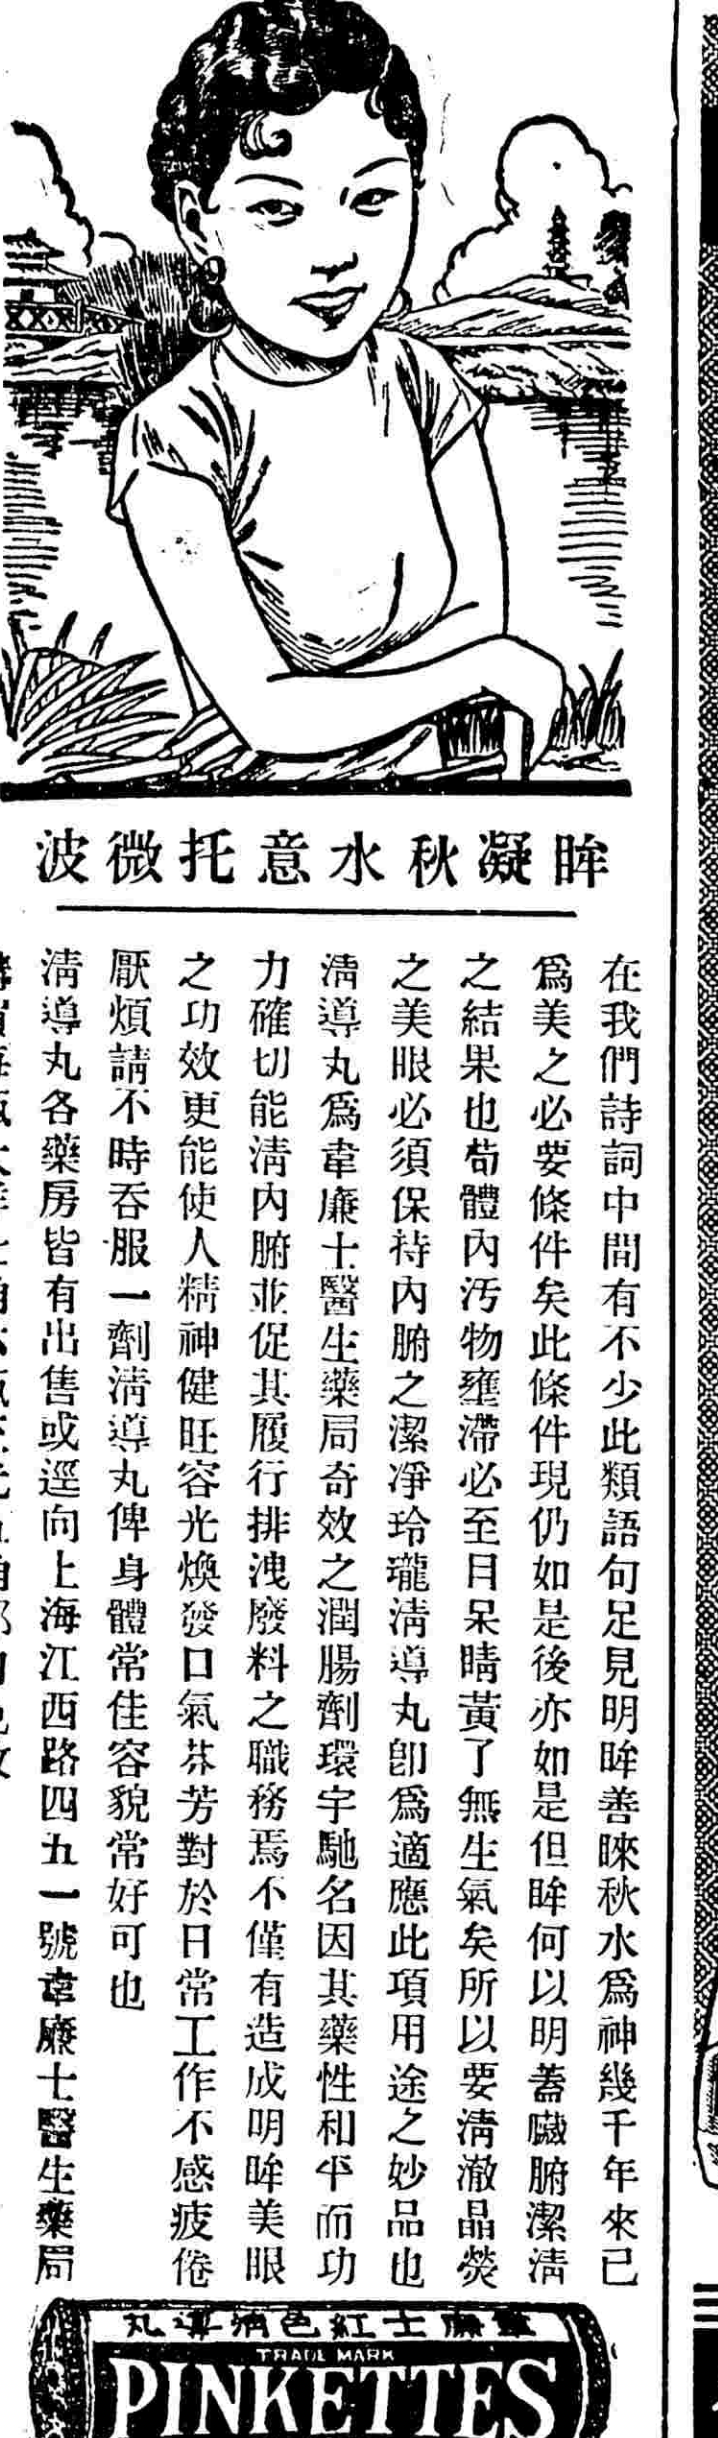 眸凝秋水意托微波
在我們詩詞中間有不少此類語句足見明眸善睞秋水爲神幾千年來已
爲美之必要條件矣此條件現仍如是後亦如是但眸何以明蓋臟腑潔清
之結果也苟體內汚物壅滯必至目呆睛黃了無生氣矣所以要清澈晶熒
之美眼必須保持內腑之潔凈玲瓏清導丸卽爲適應此項用途之妙品也
清導丸爲韋廉士醫生藥局奇效之潤腸劑環宇馳名因其藥性和平而功
力確切能清內腑並促其履行排洩廢料之職務焉不僅有造成明眸美眼
之功效更能使人精神健旺容光煥發口氣芬芳對於日常工作不感疲倦
厭煩請不時吞服一劑清導丸俾身體常佳容貌常好可也
清導丸各藥房皆有出售或逕向上海江西路四五一號韋廉士醫生藥局
韋廉士紅色清導丸
TRADE MARK
PINKETTES